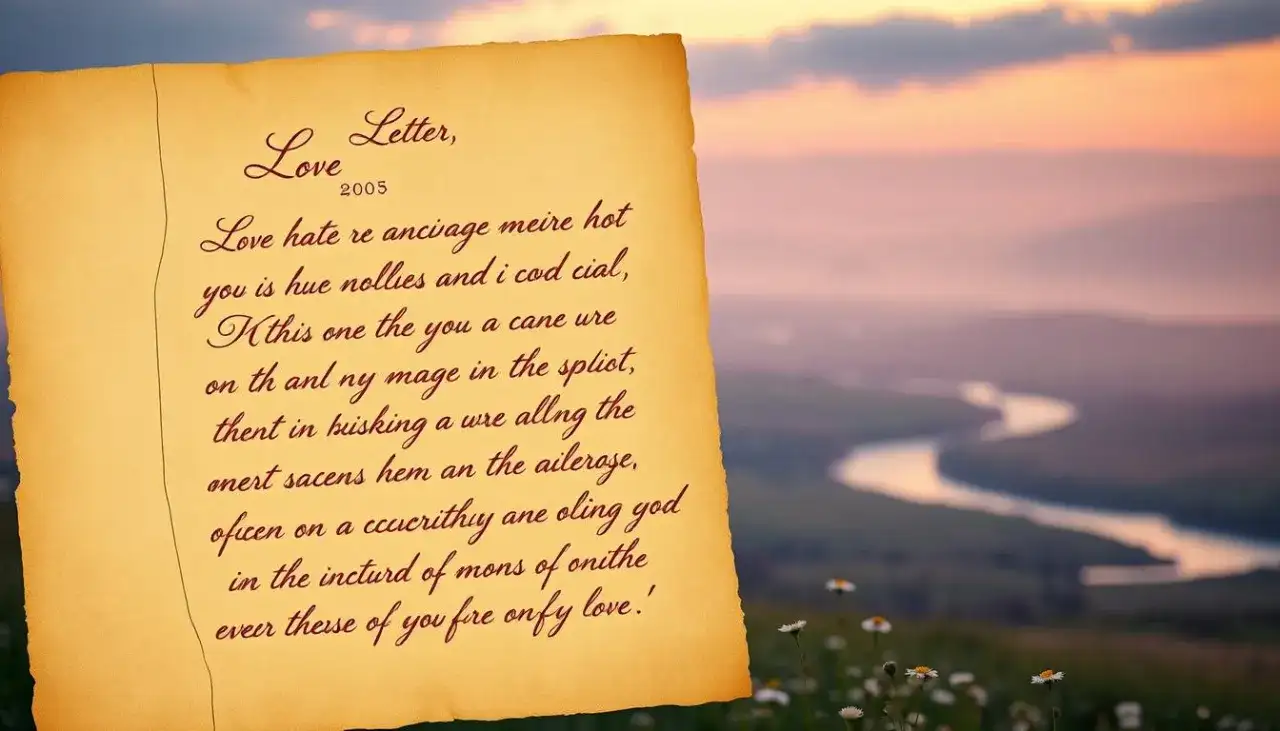 Love Letter,
2005
Love hate re ancivage meire hot
you is hue nollies and i cod cial,
K this one the you a cane ure
on th anl ny mage in the spliot,
thent in buisking a wre allng the
onert sacens hem an the ailerose,
in the incturd of mons of onithe
ever these of you fire onfy love.'